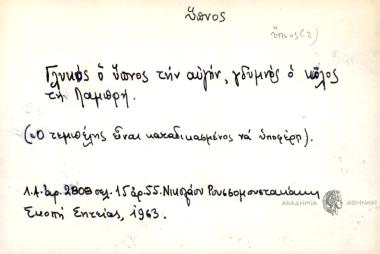 ὕπνος
ὕπνος (2)
Γλυκός ὁ ὕπνος τήν αὐγήν, γδυμνός ὁ κῶλος
τή Λαμπρή.
(= Ὁ τεμπέλης εἶναι καταδικασμένος νά ὑποφέρῃ).
Λ.Α. ἀρ. 2808 σελ. 15 ἀρ. 55. Νικολάου Ρουσσομουστακάκη
Σκοπή Σητείας, 1963.
ΑΚΑΔΗΜΙΑ ΑΘΗΝΩΝ